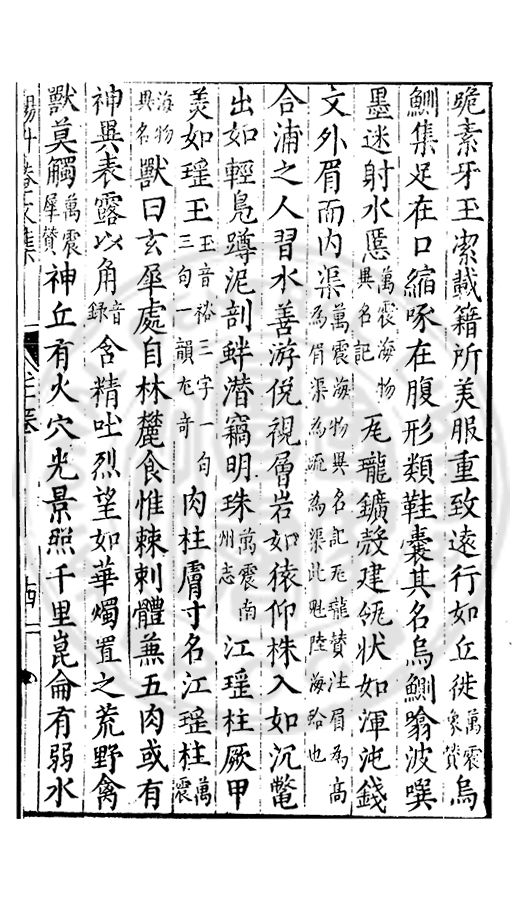 脆素牙玉潔載籍所美服重致遠行如丘徙萬震象贊烏
鰂集足在口縮喙在腹形類鞋囊其名烏鰂噏波噀
墨迷射水慝萬震海物異名記 瓦瓏鑛殼建瓴狀如渾沌錢
文外眉而內渠萬震海物異名記瓦瓏贊注眉為高為眉渠為疏為渠此魁陸海蛤也
合浦之人習水善游俛視層岩如猿仰株入如沉鼈
出如輕鳧蹲泥剖蚌潛竊明珠萬震南州志 江瑤柱厥甲
美如瑶玉玉音裕三字一句三句一韻尤奇 肉柱膚寸名江瑶柱萬震
海物異名 獸曰玄犀處自林麓食惟棘刺體兼五肉或有
神異表露以角音録含精吐烈望如華燭置之荒野禽
獸莫觸萬震犀贊神丘有火穴光景照千里崑侖有弱水